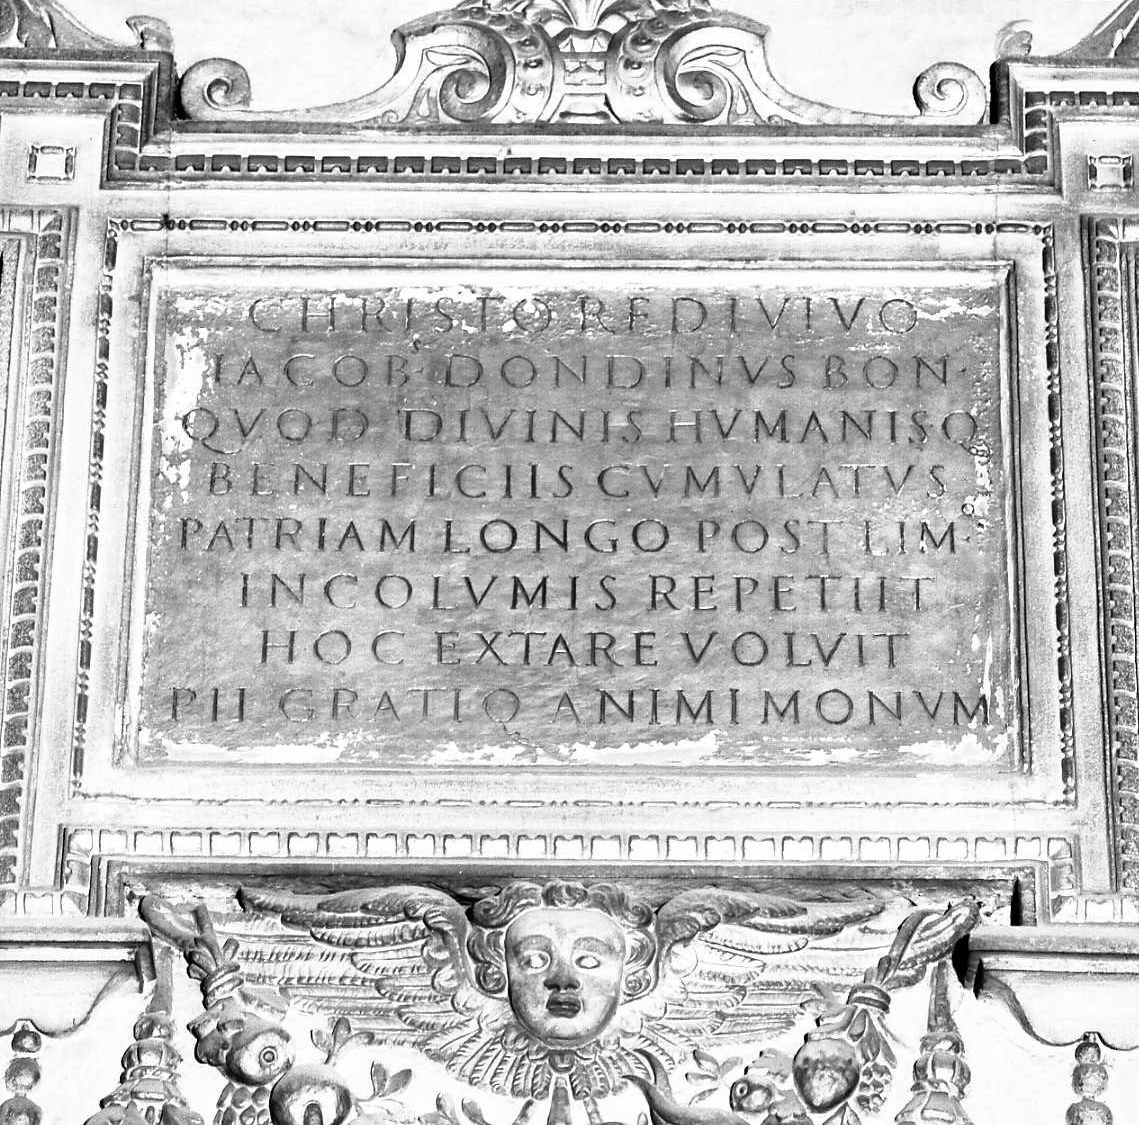 CHRISTO REDIVIVO
IACOB· DONDINVS BON·
QVOD DIVINIS HVMANISQ·
BENEFICIIS CVMVLATVS
PATRIAM LONGO POST LIM·
INCOLVMIS REPETIIT
HOC EXTARE VOLVIT
PII GRATIQ ANIMI MONVM·